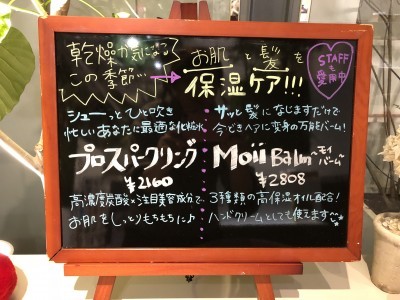 乾燥が気になる
この季節…
お肌と髪を
保湿ケア!!!
STAFFも
愛用中
シューっとひと吹き
忙しいあなたに最適な化粧水
プロスパークリング
¥2160
高濃度炭酸×注目美容成分で
お肌をしっとりもちもちに♪
サッと髪になじますだけで
今どきヘアに変身の万能バーム!
Moii Balm モイバーム
¥2808
3種類の高保湿オイル配合!
ハンドクリームとしても使えます